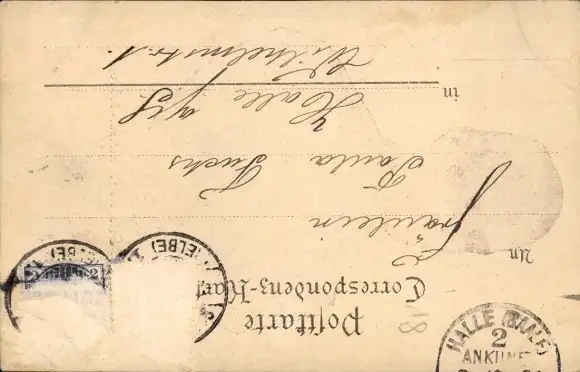 Postkarte
Correspondenz-Kart
An
Fräulein
Paula Fuchs
in
Halle a/S
Wilhelmstr 1.
(ELBE)
(ELBE)
2
2
18
HALLE (SAALE)
2
ANKUNFT